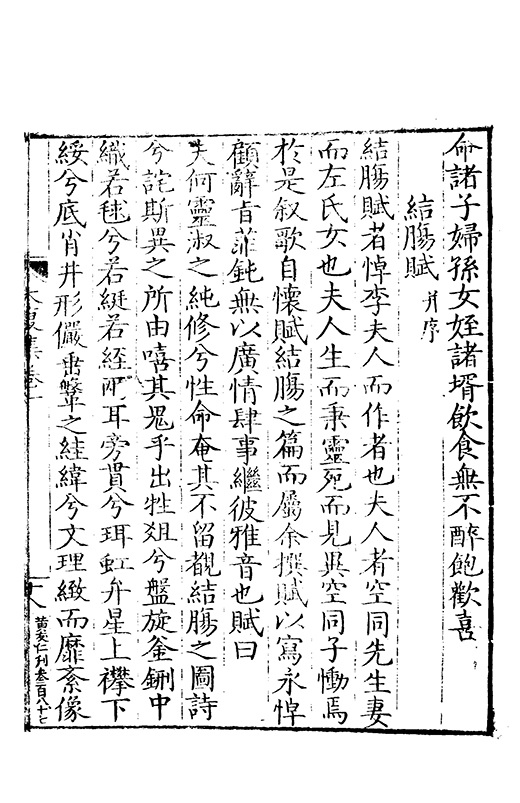 命諸子婦孫女姪諸壻飲食無不醉飽歡喜
結腸賦 并序
結腸賦者悼李夫人而作者也夫人者空同先生妻
而左氏女也夫人生而秉靈死而見異空同子慟焉
於是叙歌自懷賦結腸之篇而屬余撰賦以寫永悼
顧辭旨菲鈍無以廣情肆事繼彼雅音也賦曰
夫何靈淑之純修兮性命奄其不留覩結腸之圖詩
兮詫斯異之所由嘻其鬼乎出牲俎兮盤旋釜鉶中
織若毬兮若綖若絰兩耳旁貫兮珥虹弁星上襻下
綏兮底肖井形儼垂鞶之絓緯兮文理緻而靡紊像
十八
黄奕仁刊叁百八十七